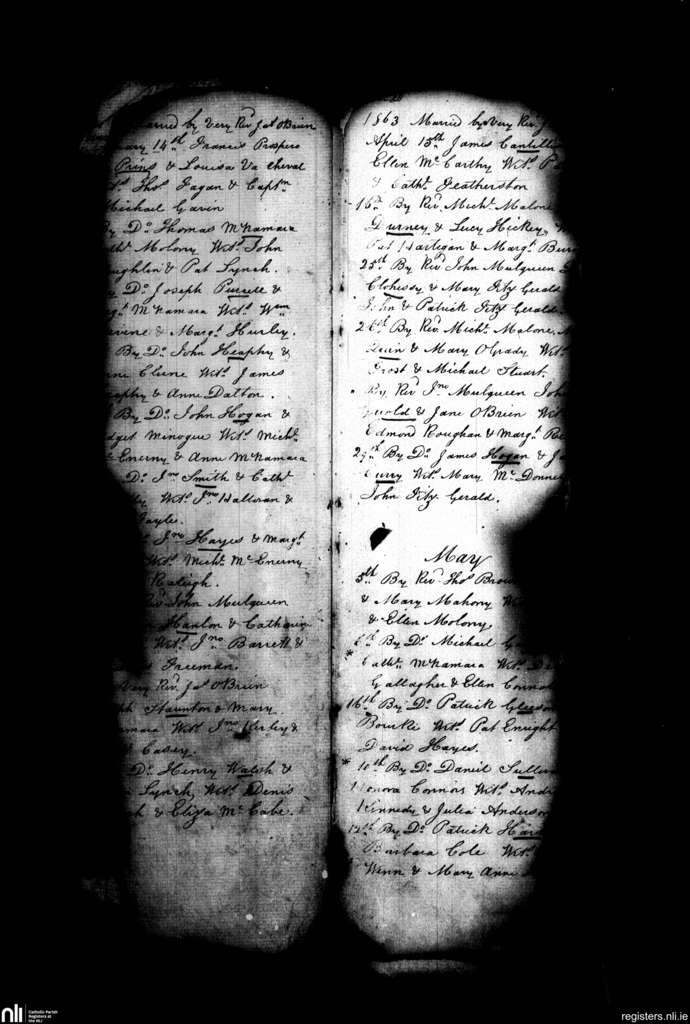 arried by Very Revd Jas O'Brien
ary 14th Francis Prospero
Prins & Louisa Va cheval
Thos Fagan & Captn
Michael Gavin
Do Thomas McNamara
Molony Wits John
ughlin & Pat Lynch.
Do Joseph Purcell &
McNamara Wits Wm
& Margt Hurley.
By Do John Heaphy &
Clune Wits James
aphy & Anne Dalton.
By Do John Hogan &
dget Minogue Wits Michl
McEnerny & Anne McNamara
Do Jno Smith & Cathe
Wits Jno Halloran &
Jno Hayes & Margt
Wits Michl McEnerny
Raleigh.
John Mulqueen
Hanlon & Catharin
Wits Jno Barrett &
Freeman.
Very Revd Jas O'Brien
Staunton & Mary
Wits Jno Hurley &
Casey.
Do Henry Walsh &
Lynch Wits Denis
& Eliza McCabe.
1863 Married by Very Revd J
April 15th James Cantill
Ellen McCarthy Wits P
& Cathe Featherston
16th By Revd Michl Malone
Durney & Lucy Hickey W
Pat Hartigan & Margt Bur
25th By Revd John Mulqueen
Clohessy & Mary Fitz Gerald
John & Patrick Fitz Gerald
26th By Revd Michl Malone
Quin & Mary O'Grady Wits
Frost & Michael Stuart.
By Revd Jno Mulqueen John
& Jane O'Brien Wit
Edmond Roughan & Margt
29th By Do James Hogan & J
Curry Wits Mary McDonne
John Fitz Gerald.
May
5th By Revd Thos Brow
& Mary Mahony W
& Ellen Molony
6th By Do Michael
Cathe McNamara Wits
Gallagher & Ellen Connor
16th By Do Patrick Gleeson
Bourke Wits Pat Enright
David Hayes.
* 10th By Do Daniel Sulliv
Honora Connors Wits Andr
Kennedy & Julia Anderson
12th By Do Patrick
Barbara Cole Wits
Winn & Mary Anne
nli
Catholic Parish
Registers at
the NLI
registers.nli.ie